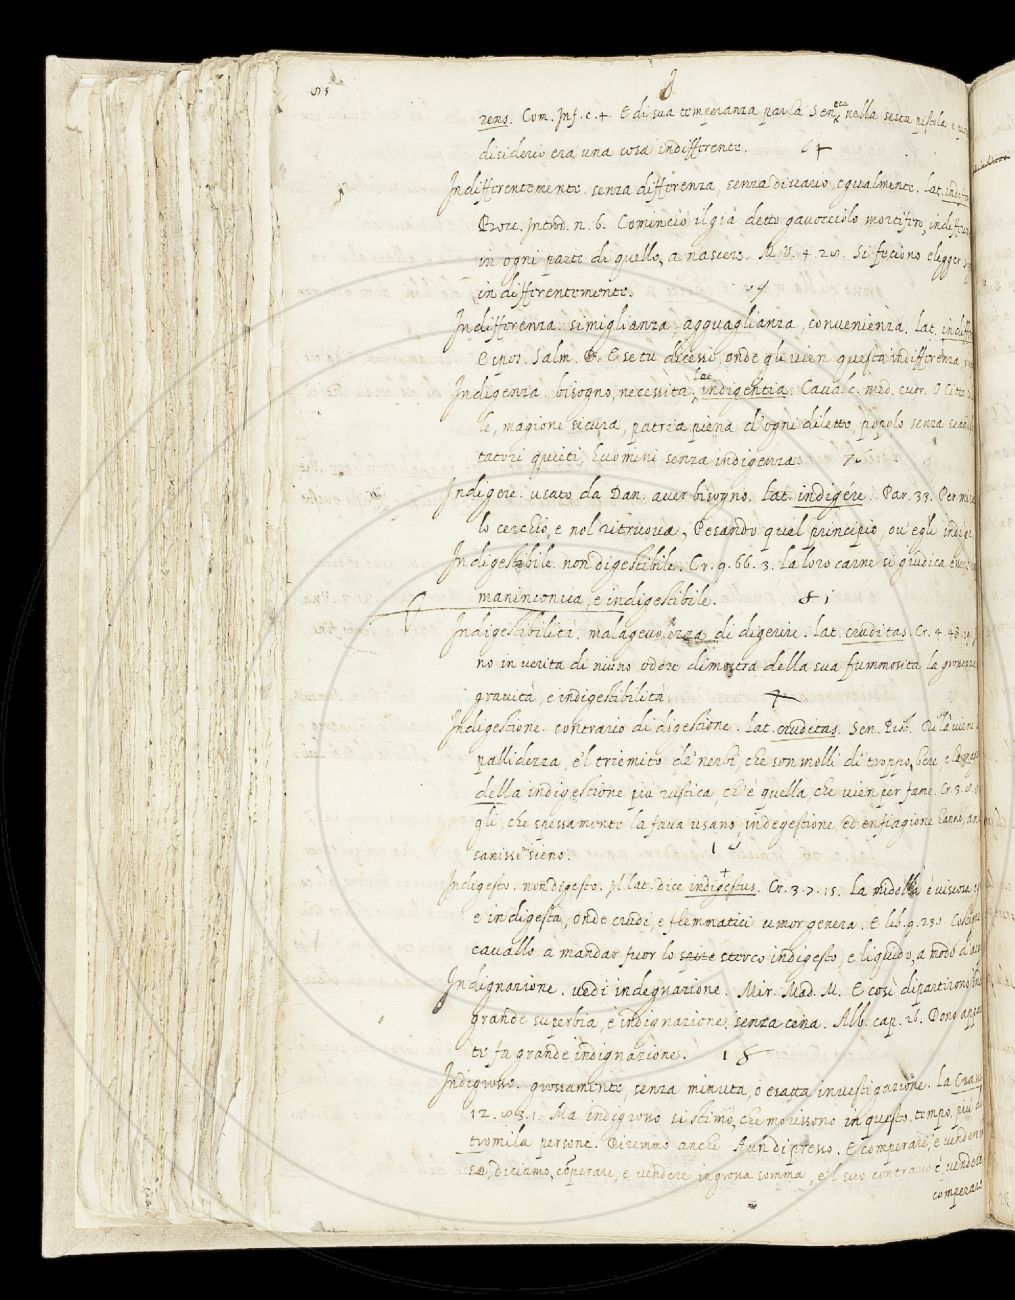 I
rens. Com. Inf. c. 4. E di sua temperanza parla Seneca nella sesta pistola e
disiderio era una cosa indifferente.
Indifferentemente. senza differenza, senza divario, egualmente. Lat.
Bocc. Introd. n. 6. Cominciò il già detto gavocciolo mortifero,
in ogni parte di quello, a nascere. M. V. 4. Si feciono
indifferentemente.
Indifferenza. simiglianza, agguaglianza, convenienza. Lat.
Espos. Salm. E se tu dicessi, onde gli vien questa indifferenza
Indigenza. bisogno, necessità. Lat. indigentia. Cavalc. med. cuor. O Citta
le, magione sicura, patria piena d'ogni diletto, popolo senza
tatori quieti, huomini senza indigenza. 76
Indigere. usato da Dan. aver bisogno. Lat. indigére. Par. 33. Per
lo cerchio, e nol ritruova, Pesando quel principio, ov' egli
Indigestibile. non digestibile. Cr. 9. 66. 3. La loro carne si giudica
maninconica, e indigestibile. 81
Indigestibilità. malagevolezza di digerire. Lat. cruditas. Cr. 4. 48.
no in verita di niuno odore dimostra della sua fummosita la
gravità, e indigestibilità.
Indigestione. contrario di digestione. Lat. cruditas. Sen. Pist. Di là viene
pallidezza, e'l triemito de' nerbi, che son molli di troppo bere, e
della indigestione più rustica, ch'è quella, che vien per fame. Cr. 3.
gli, che spessamente la fava usano, indegestione, ed enfiagione hanno,
sanissi sieno.
Indigesto. non digesto. Il lat. dice indigestus. Cr. 3. 7. 15. La midolla è viscosa
e indigesta, onde crudi, e flemmatici umor genera. E lib. 9. 23.
cavallo a mandar fuor lo sterco indigesto, e liquido, a modo d'
Indignazione. vedi indegnazione. Mir. Mad. M. E così dipartirono
grande superbia, e indignazione, senza cena. Alb. cap. 26. Dono
to fa grande indignazione. 18
Indigrosso. grossamente, senza minuta, o esatta investigazione. La
12. 83. 1. Ma indigrosso si stimò, che morissono in questo tempo, più di
tromila persone. Diremmo anche A un dipresso. E comperare, e vendere
so, diciamo, comperare, e vendere in grossa somma, e'l suo contrario è vendere
comperare